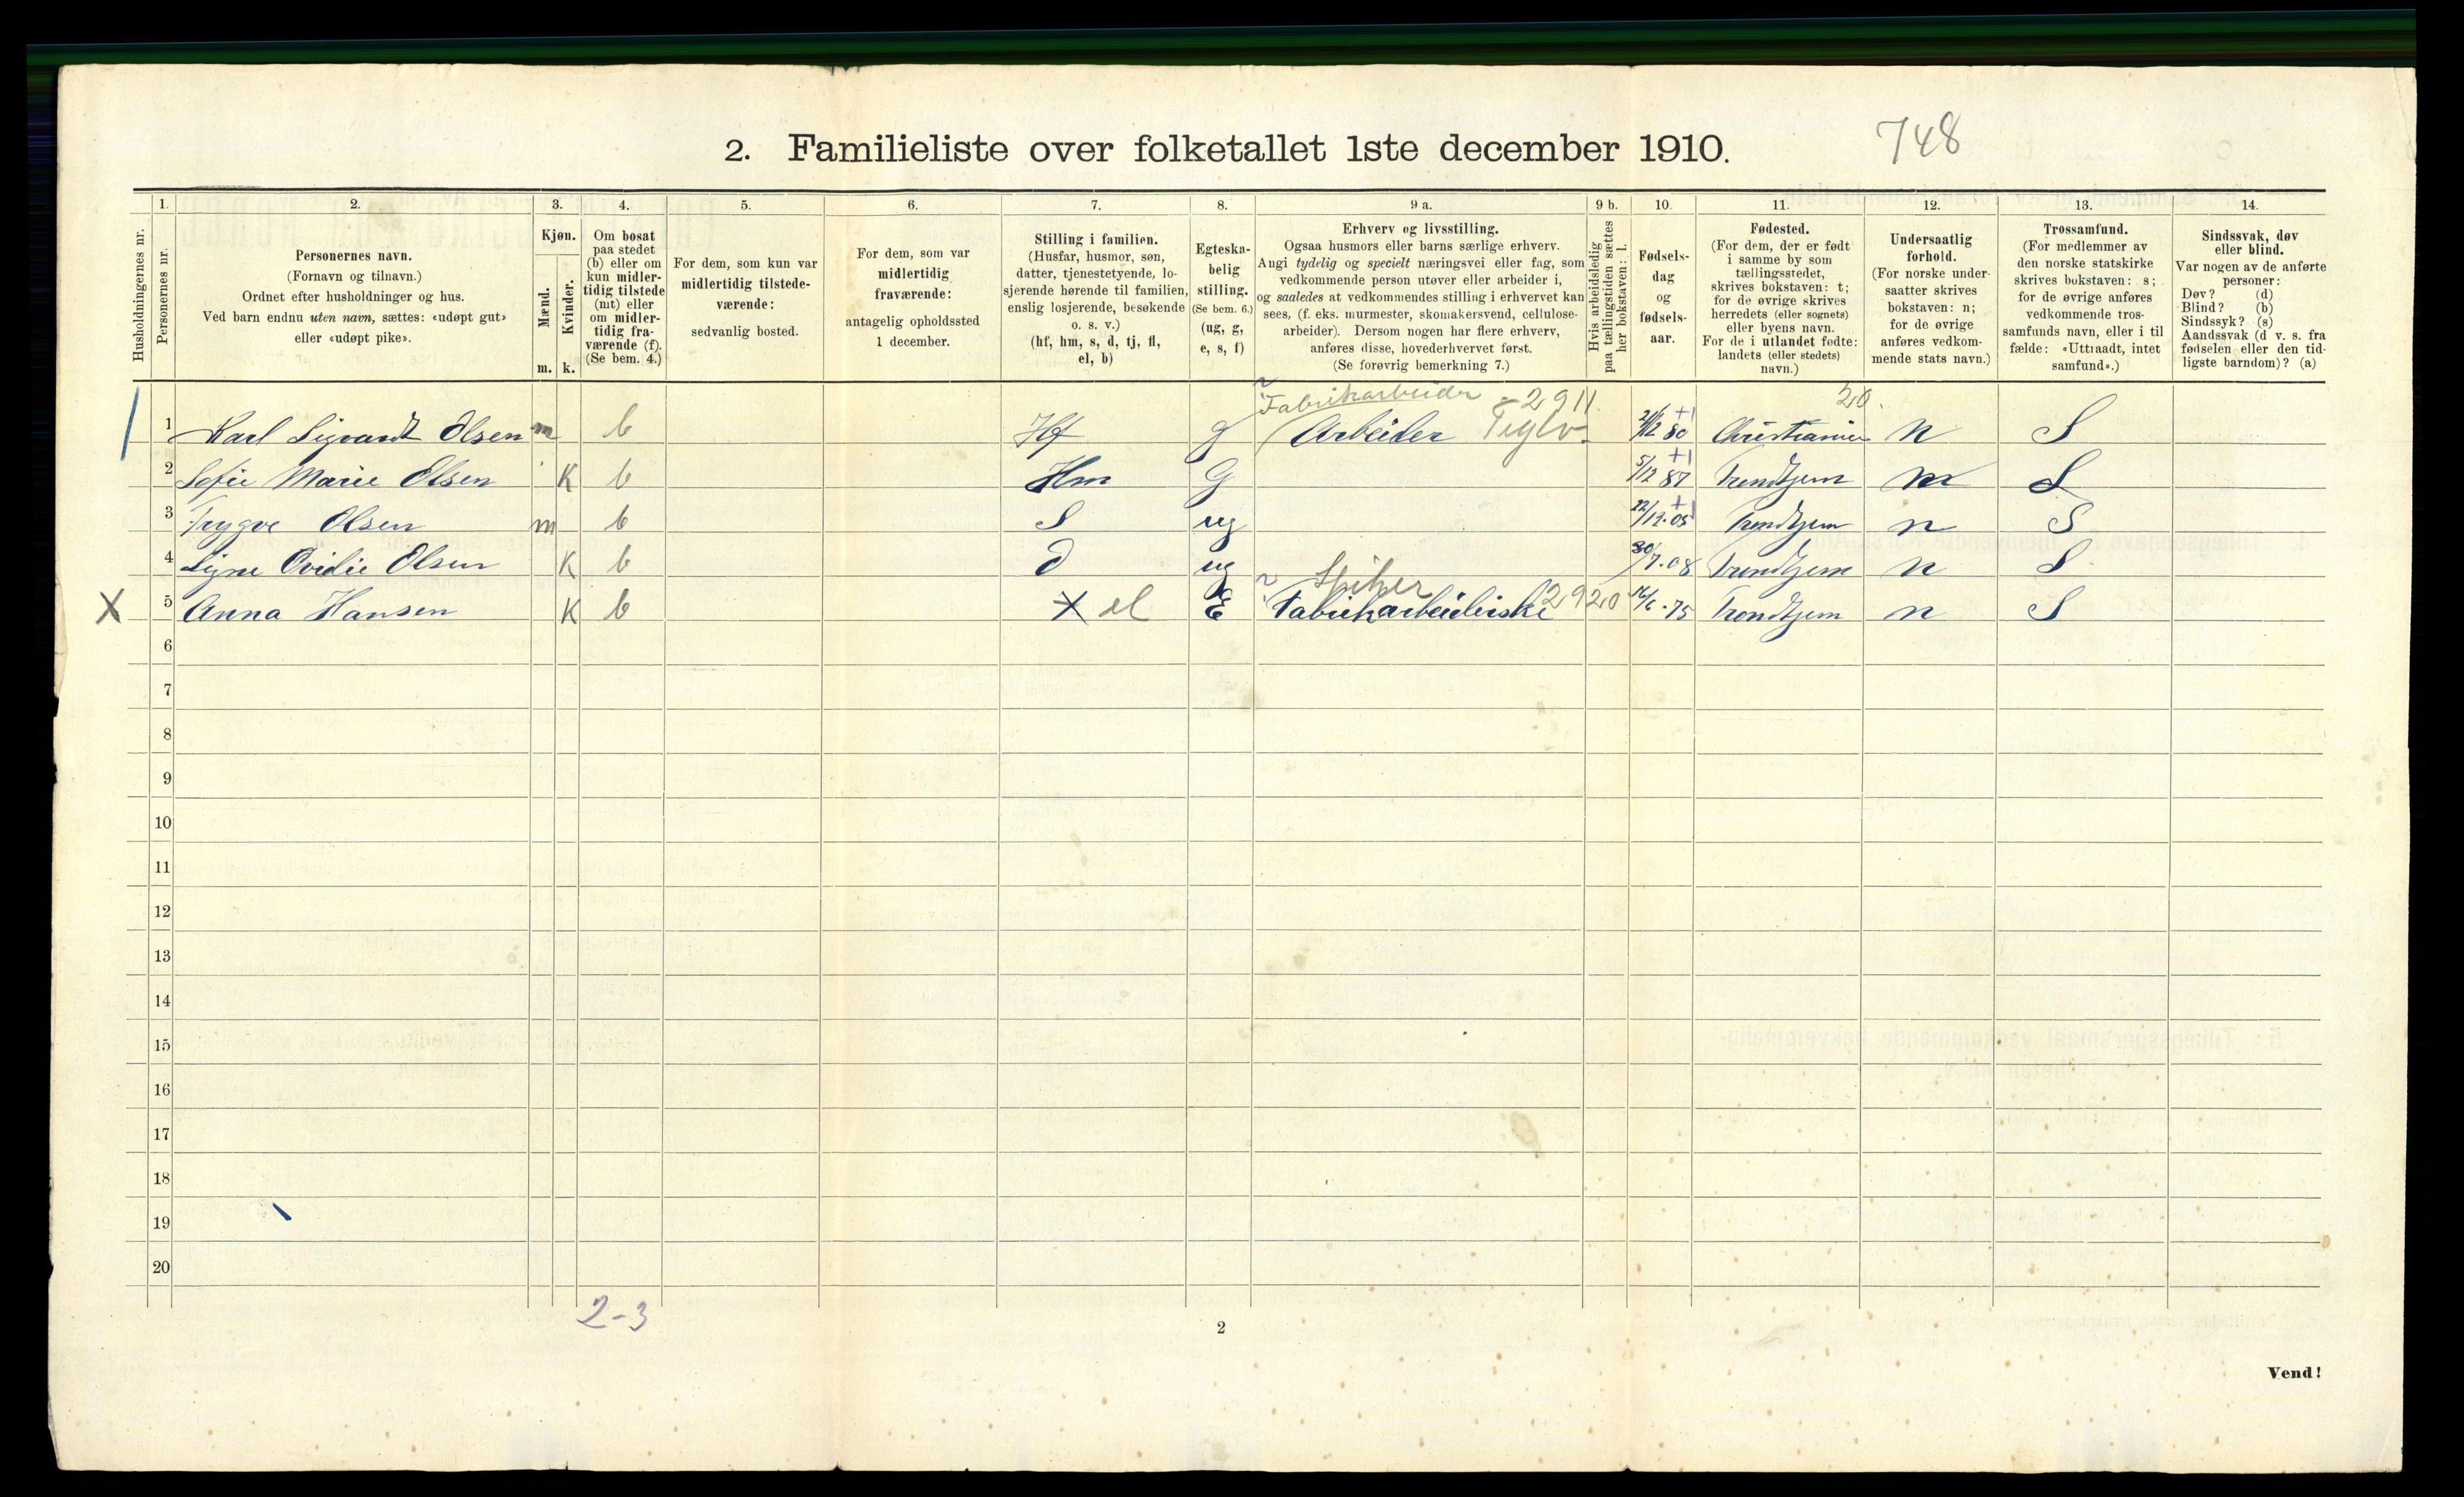 2. Familieliste over folketallet 1ste december 1910.
748
1. 2. 3. 4. 5. 6. 7. 8. 9 a. 9 b. 10. 11. 12. 13. 14.
Husholdningernes nr.
Personernes nr.
Personernes navn.
(Fornavn og tilnavn.)
Ordnet efter husholdninger og hus.
Ved barn endnu uten navn, sættes: «udøpt gut»
eller «udøpt pike».
Kjøn.
Mænd.
Kvinder.
m. k.
Om bosat
paa stedet
(b) eller om
kun midler-
tidig tilstede
(mt) eller
om midler-
tidig fra-
værende (f).
(Se bem. 4.)
For dem, som kun var
midlertidig tilstede-
værende:
sedvanlig bosted.
For dem, som var
midlertidig
fraværende:
antagelig opholdssted
1 december.
Stilling i familien.
(Husfar, husmor, søn,
datter, tjenestetyende, lo-
sjerende hørende til familien,
enslig losjerende, besøkende
o. s. v.)
(hf, hm, s, d, tj, fl,
el, b)
Egteska-
belig
stilling.
(Se bem. 6.)
(ug, g,
e, s, f)
Erhverv og livsstilling.
Ogsaa husmors eller barns særlige erhverv.
Angi tydelig og specielt næringsvei eller fag, som
vedkommende person utøver eller arbeider i,
og saaledes at vedkommendes stilling i erhvervet kan
sees, (f. eks. murmester, skomakersvend, cellulose-
arbeider). Dersom nogen har flere erhverv,
anføres disse, hovederhvervet først.
(Se forøvrig bemerkning 7.)
Hvis arbeidsledig
paa tællingstiden sættes
her bokstaven: l.
Fødsels-
dag
og
fødsels-
aar.
Fødested.
(For dem, der er født
i samme by som
tællingsstedet,
skrives bokstaven: t;
for de øvrige skrives
herredets (eller sognets)
eller byens navn.
For de i utlandet fødte:
landets (eller stedets)
navn.)
Undersaatlig
forhold.
(For norske under-
saatter skrives
bokstaven: n;
for de øvrige
anføres vedkom-
mende stats navn.)
Trossamfund.
(For medlemmer av
den norske statskirke
skrives bokstaven: s;
for de øvrige anføres
vedkommende tros-
samfunds navn, eller i til-
fælde: «Uttraadt, intet
samfund».)
Sindssvak, døv
eller blind.
Var nogen av de anførte
personer:
Døv? (d)
Blind? (b)
Sindssyk? (s)
Aandssvak (d. v. s. fra
fødselen eller den tid-
ligste barndom)? (a)
Fabrikarbeider 2911. 20.
1 Karl Sigvardt Olsen m b Hf g Arbeider Teglv. 80 Christiania n S
2 Sofie Marie Olsen K b Hm G 5/12 87 Trondhjem n S
3 Trygve Olsen m b S ug 22/12.05 Trondhjem n S
4 Signe Ovidie Olsen K b d ug 30/7.08 Trondhjem n S
Spiker
X 5 Anna Hansen K b X el E Fabrikarbeiderske 2920 75 Trondhjem n S
6
7
8
9
10
11
12
13
14
15
16
17
18
19
20
2-3
2
Vend!